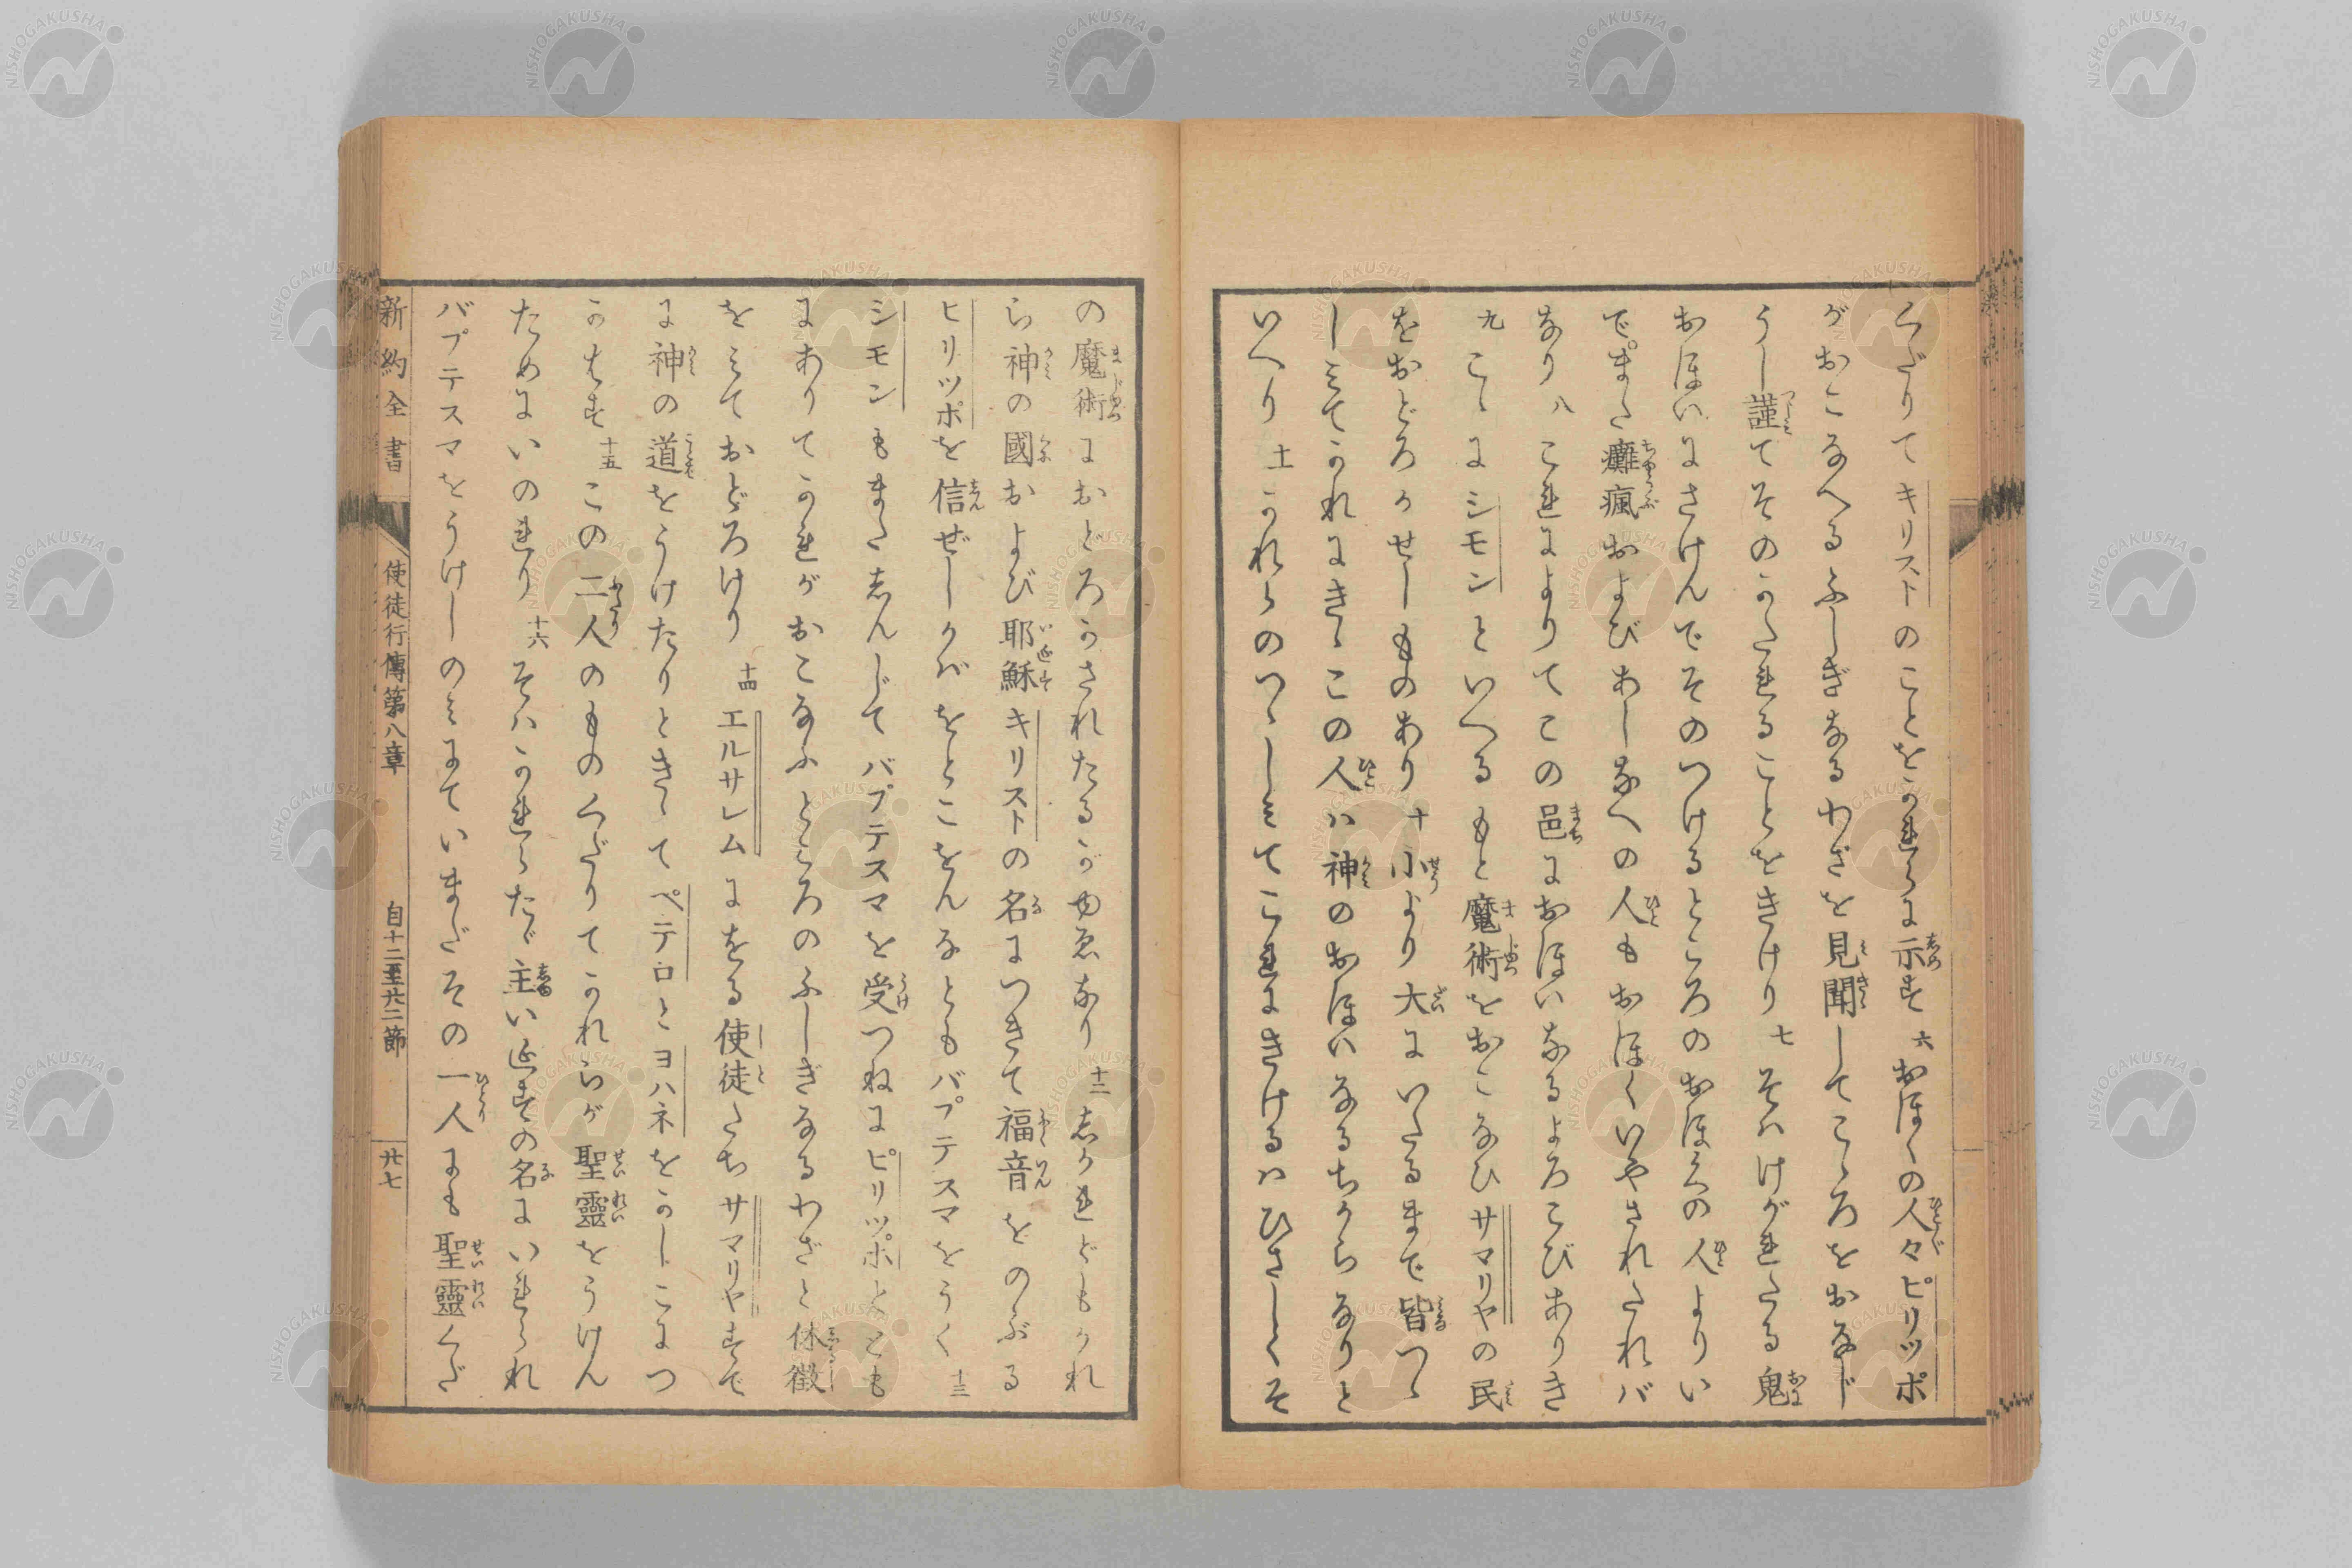 くだりてキリストのことをかれらに示す 六 おほくの人々ピリツポ
がおこなへるふしぎなるわざを見聞してこゝろをおなじ
うし謹てそのかたれることをきけり 七 そハけがれたる鬼
おほいにさけんでそのつけるところのおほくの人よりい
でまた癱瘋およびあしなへの人もおほくいやされたれバ
なり 八 これによりてこの邑におほいなるよろこびありき
九 こゝにシモンといへるもと魔術をおこなひサマリヤの民
をおどろかせしものあり 十 小より大にいたるまで皆つゝ
しミてかれにきゝこの人ハ神のおほいなるちからなりと
いへり 十一 かれらのつゝしミてこれにきけるハひさしくそ
の魔術におどろかされたるがゆゑなり 十二 志かれどもかれ
ら神の國および耶穌キリストの名につきて福音をのぶる
ピリツポを信ぜしかバをとこをんなともバプテスマをうく 十三
シモンもまた志んじてバプテスマを受つねにピリツポととも
にありてかれがおこなふところのふしぎなるわざと休徴
をミておどろけり 十四 エルサレムにをる使徒たちサマリヤすで
に神の道をうけたりときゝてペテロとヨハネをかしこにつ
かはす 十五 この二人のものくだりてかれらが聖靈をうけん
ためにいのれり 十六 そハかれらたゞ主いエすの名にいれられ
バプテスマをうけしのミにていまだその一人にも聖靈くだ
新約全書 使徒行傳第八章 自十二至廿二節 廿七
NISHOGAKUSHA